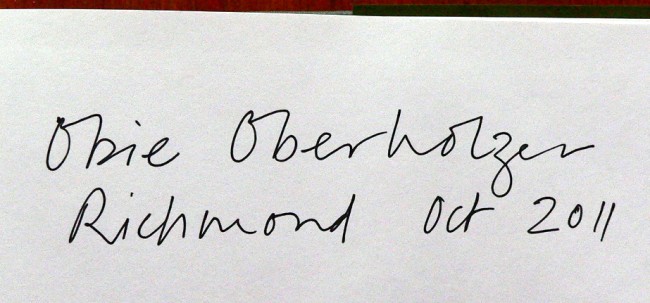 Obie Oberholzer
Richmond Oct 2011